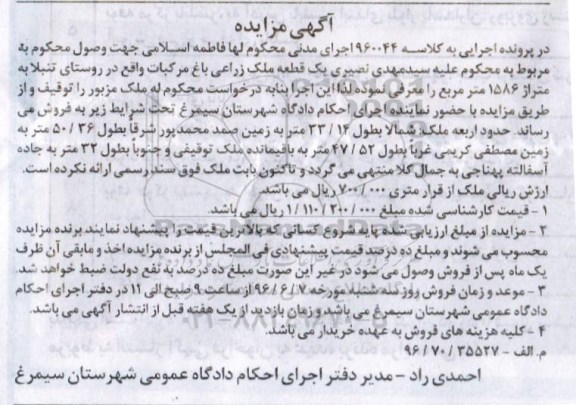 آگهی مزایده
در پرونده اجرایی به کلاسه ۹۶۰۰۴۴ اجرای مدنی محکوم لها فاطمه اسلامی جهت وصول محکوم به
مربوط به محکوم علیه سیدمهدی نصیری یک قطعه ملک زراعی باغ مرکبات واقع در روستای تنبلا به
متراژ ۱۵۸۶ متر مربع را معرفی نموده لذا این اجرا بنابه درخواست محکوم له ملک مزبور را توقیف و از
طریق مزایده با حضور نماینده اجرای احکام دادگاه شهرستان سیمرغ تحت شرایط زیر به فروش می
رساند. حدود اربعه ملک: شمالا بطول ۱۴ / ۳۳ متر به زمین صمد محمدپور شرقاً بطول ۳۶ / ۵۰ متر به
زمین مصطفی کریمی غرباً بطول ۵۲ / ۴۷ متر به باقیمانده ملک توقیفی و جنوباً بطول ۳۲ متر به جاده
آسفالته پهناجی به جمال کلا منتهی می گردد و تاکنون بابت ملک فوق سند رسمی ارائه نکرده است.
ارزش ریالی ملک از قرار متری ۰۰۰ / ۷۰۰ ریال می باشد.
۱ - قیمت کارشناسی شده مبلغ ۰۰۰ / ۲۰۰ / ۱۱۰ / ۱ ریال می باشد.
۲ - مزایده از مبلغ ارزیابی شده پایه شروع کسانی که بالاترین قیمت را پیشنهاد نمایند برنده مزایده
محسوب می شوند و مبلغ ده درصد قیمت پیشنهادی فی المجلس از برنده مزایده اخذ و مابقی آن ظرف
یک ماه پس از فروش وصول می شود در غیر این صورت مبلغ ده درصد به نفع دولت ضبط خواهد شد.
۳ - موعد و زمان فروش روز سه شنبه مورخه ۷ / ۶ / ۹۶ از ساعت ۹ صبح الی ۱۲ در دفتر اجرای احکام
دادگاه عمومی شهرستان سیمرغ می باشد و زمان بازدید از یک هفته قبل از انتشار آگهی می باشد.
۴ - کلیه هزینه های فروش به عهده خریدار می باشد.
م. الف - ۳۵۵۲۷ / ۷۰ / ۹۶
احمدی راد - مدیر دفتر اجرای احکام دادگاه عمومی شهرستان سیمرغ